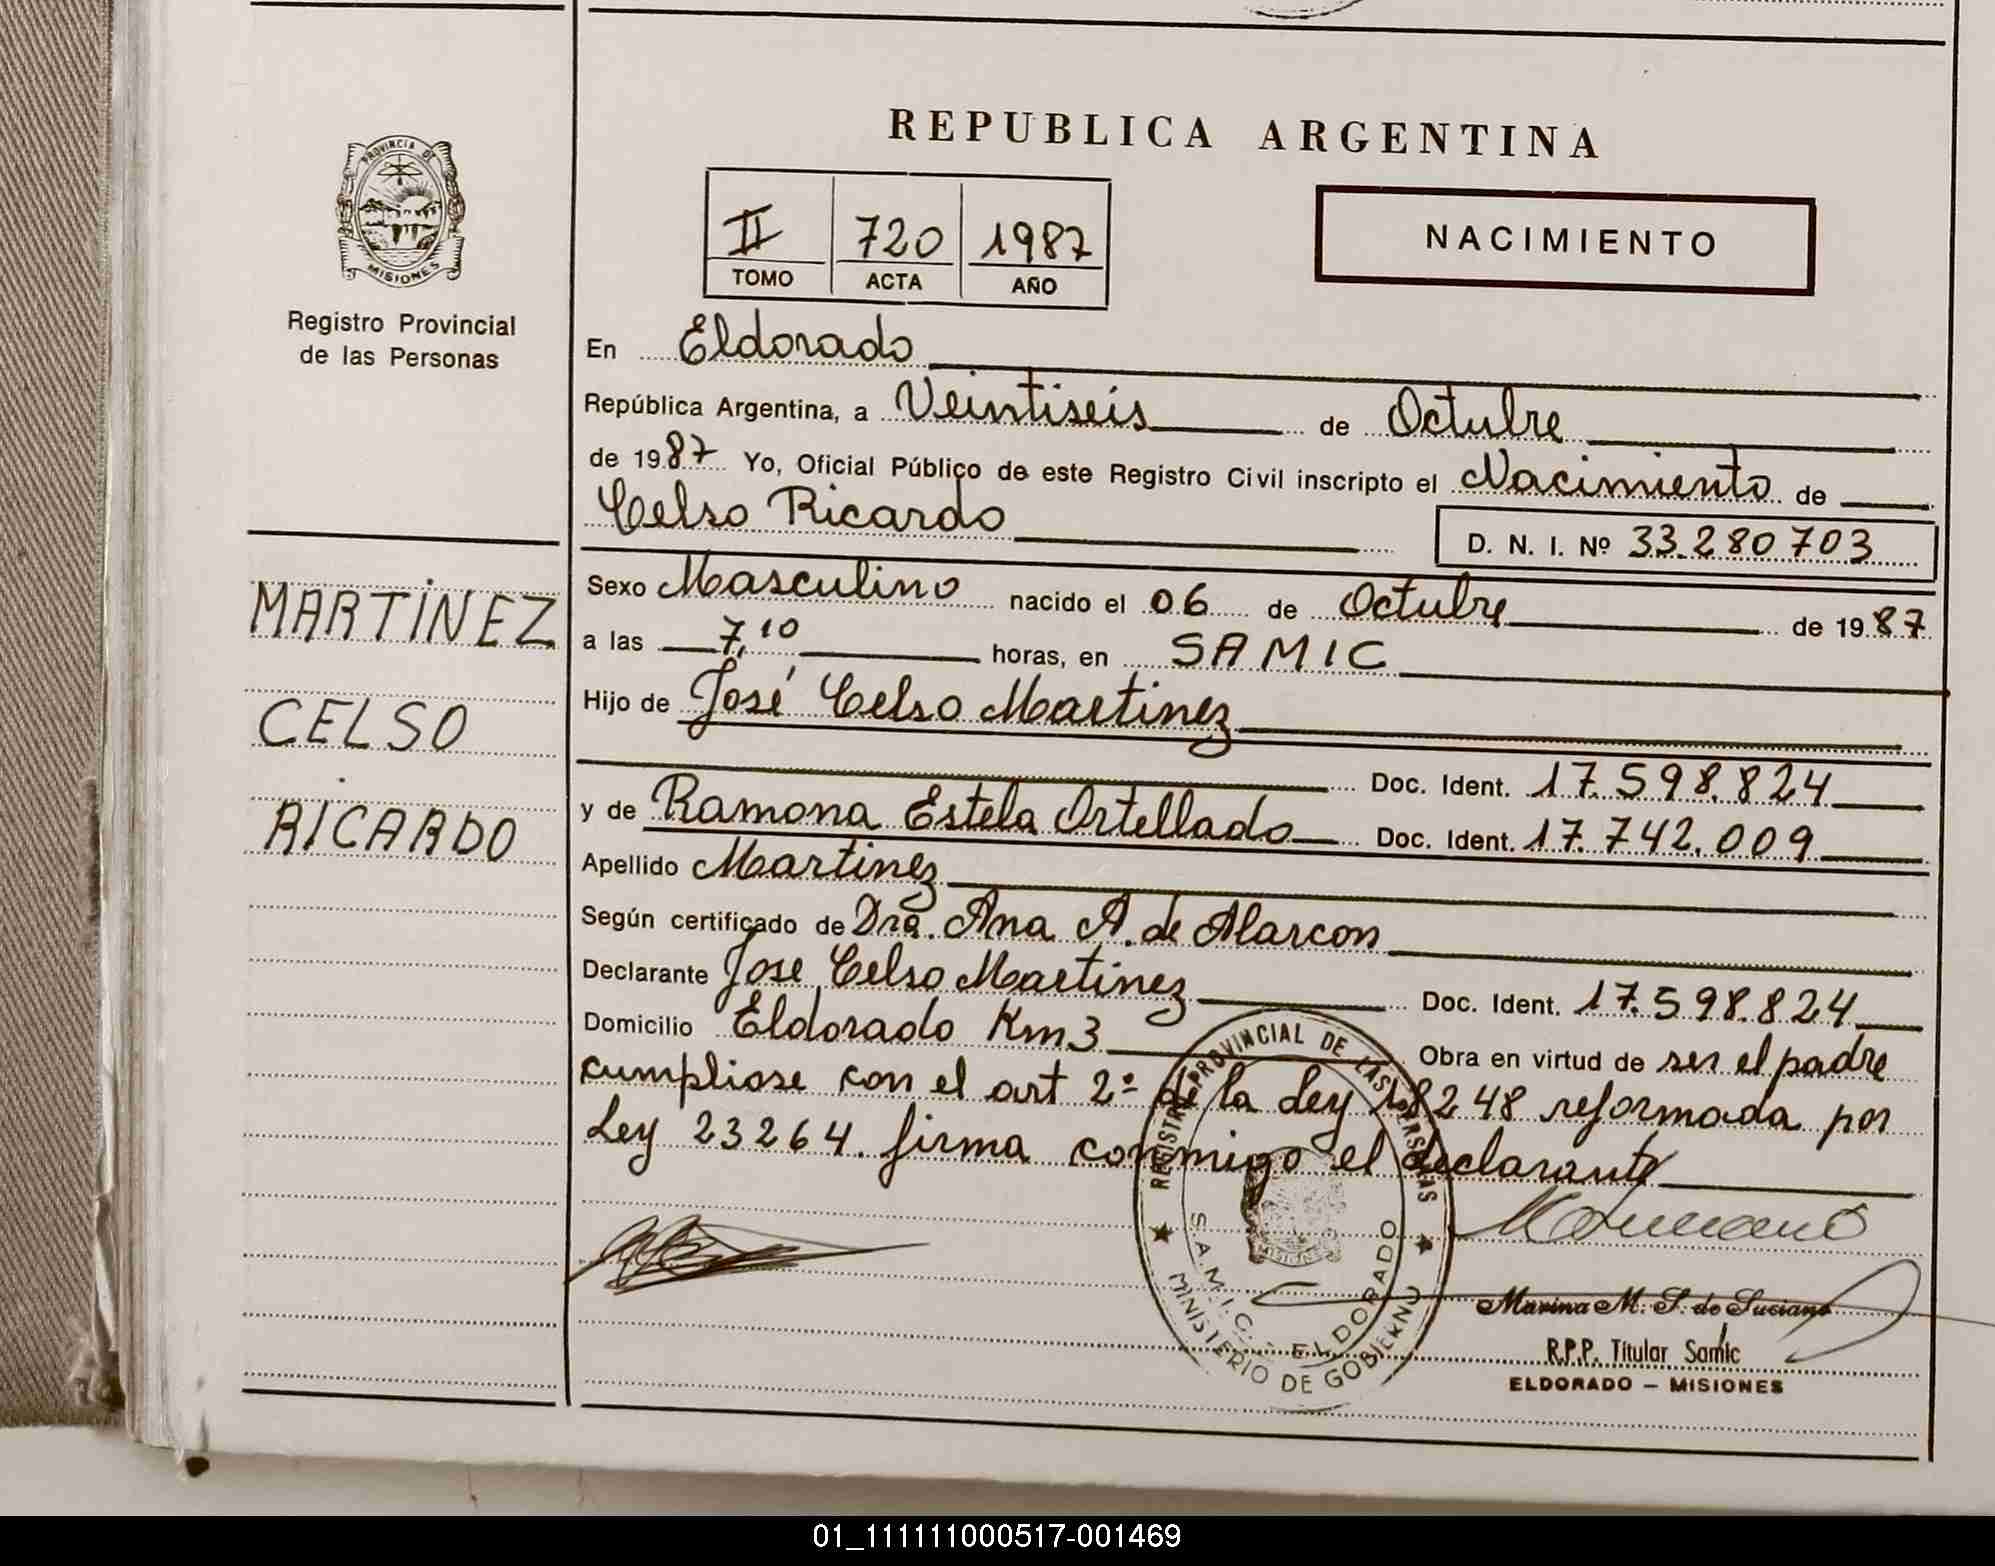 REPUBLICA ARGENTINA
PROVINCIA DE
MISIONES
Registro Provincial
de las Personas
II 720 1987
TOMO ACTA AÑO
NACIMIENTO
En Eldorado
República Argentina, a Veintiseis de Octubre
de 1987 Yo, Oficial Público de este Registro Civil inscripto el Nacimiento de
Celso Ricardo
D. N. I. Nº 33.280703
MARTINEZ
CELSO
RICARDO
Sexo Masculino nacido el 06 de Octubre de 1987
a las 7,10 horas, en SAMIC
Hijo de José Celso Martinez
Doc. Ident. 17.598.824
y de Ramona Estela Ortellado Doc. Ident. 17.742.009
Apellido Martinez
Según certificado de Dra. Ana A. de Alarcon
Declarante Jose Celso Martinez Doc. Ident. 17.598.824
Domicilio Eldorado Km3 Obra en virtud de ser el padre
cumpliose con el art 2º de la Ley 18248 reformada por
Ley 23264. firma conmigo el declarante
REGISTRO PROVINCIAL DE LAS PERSONAS
S.A.M.I.C. ELDORADO
MINISTERIO DE GOBIERNO
MISIONES
Marina M. S. de Luciano
R.P.P. Titular Samic
ELDORADO – MISIONES
01_111111000517-001469